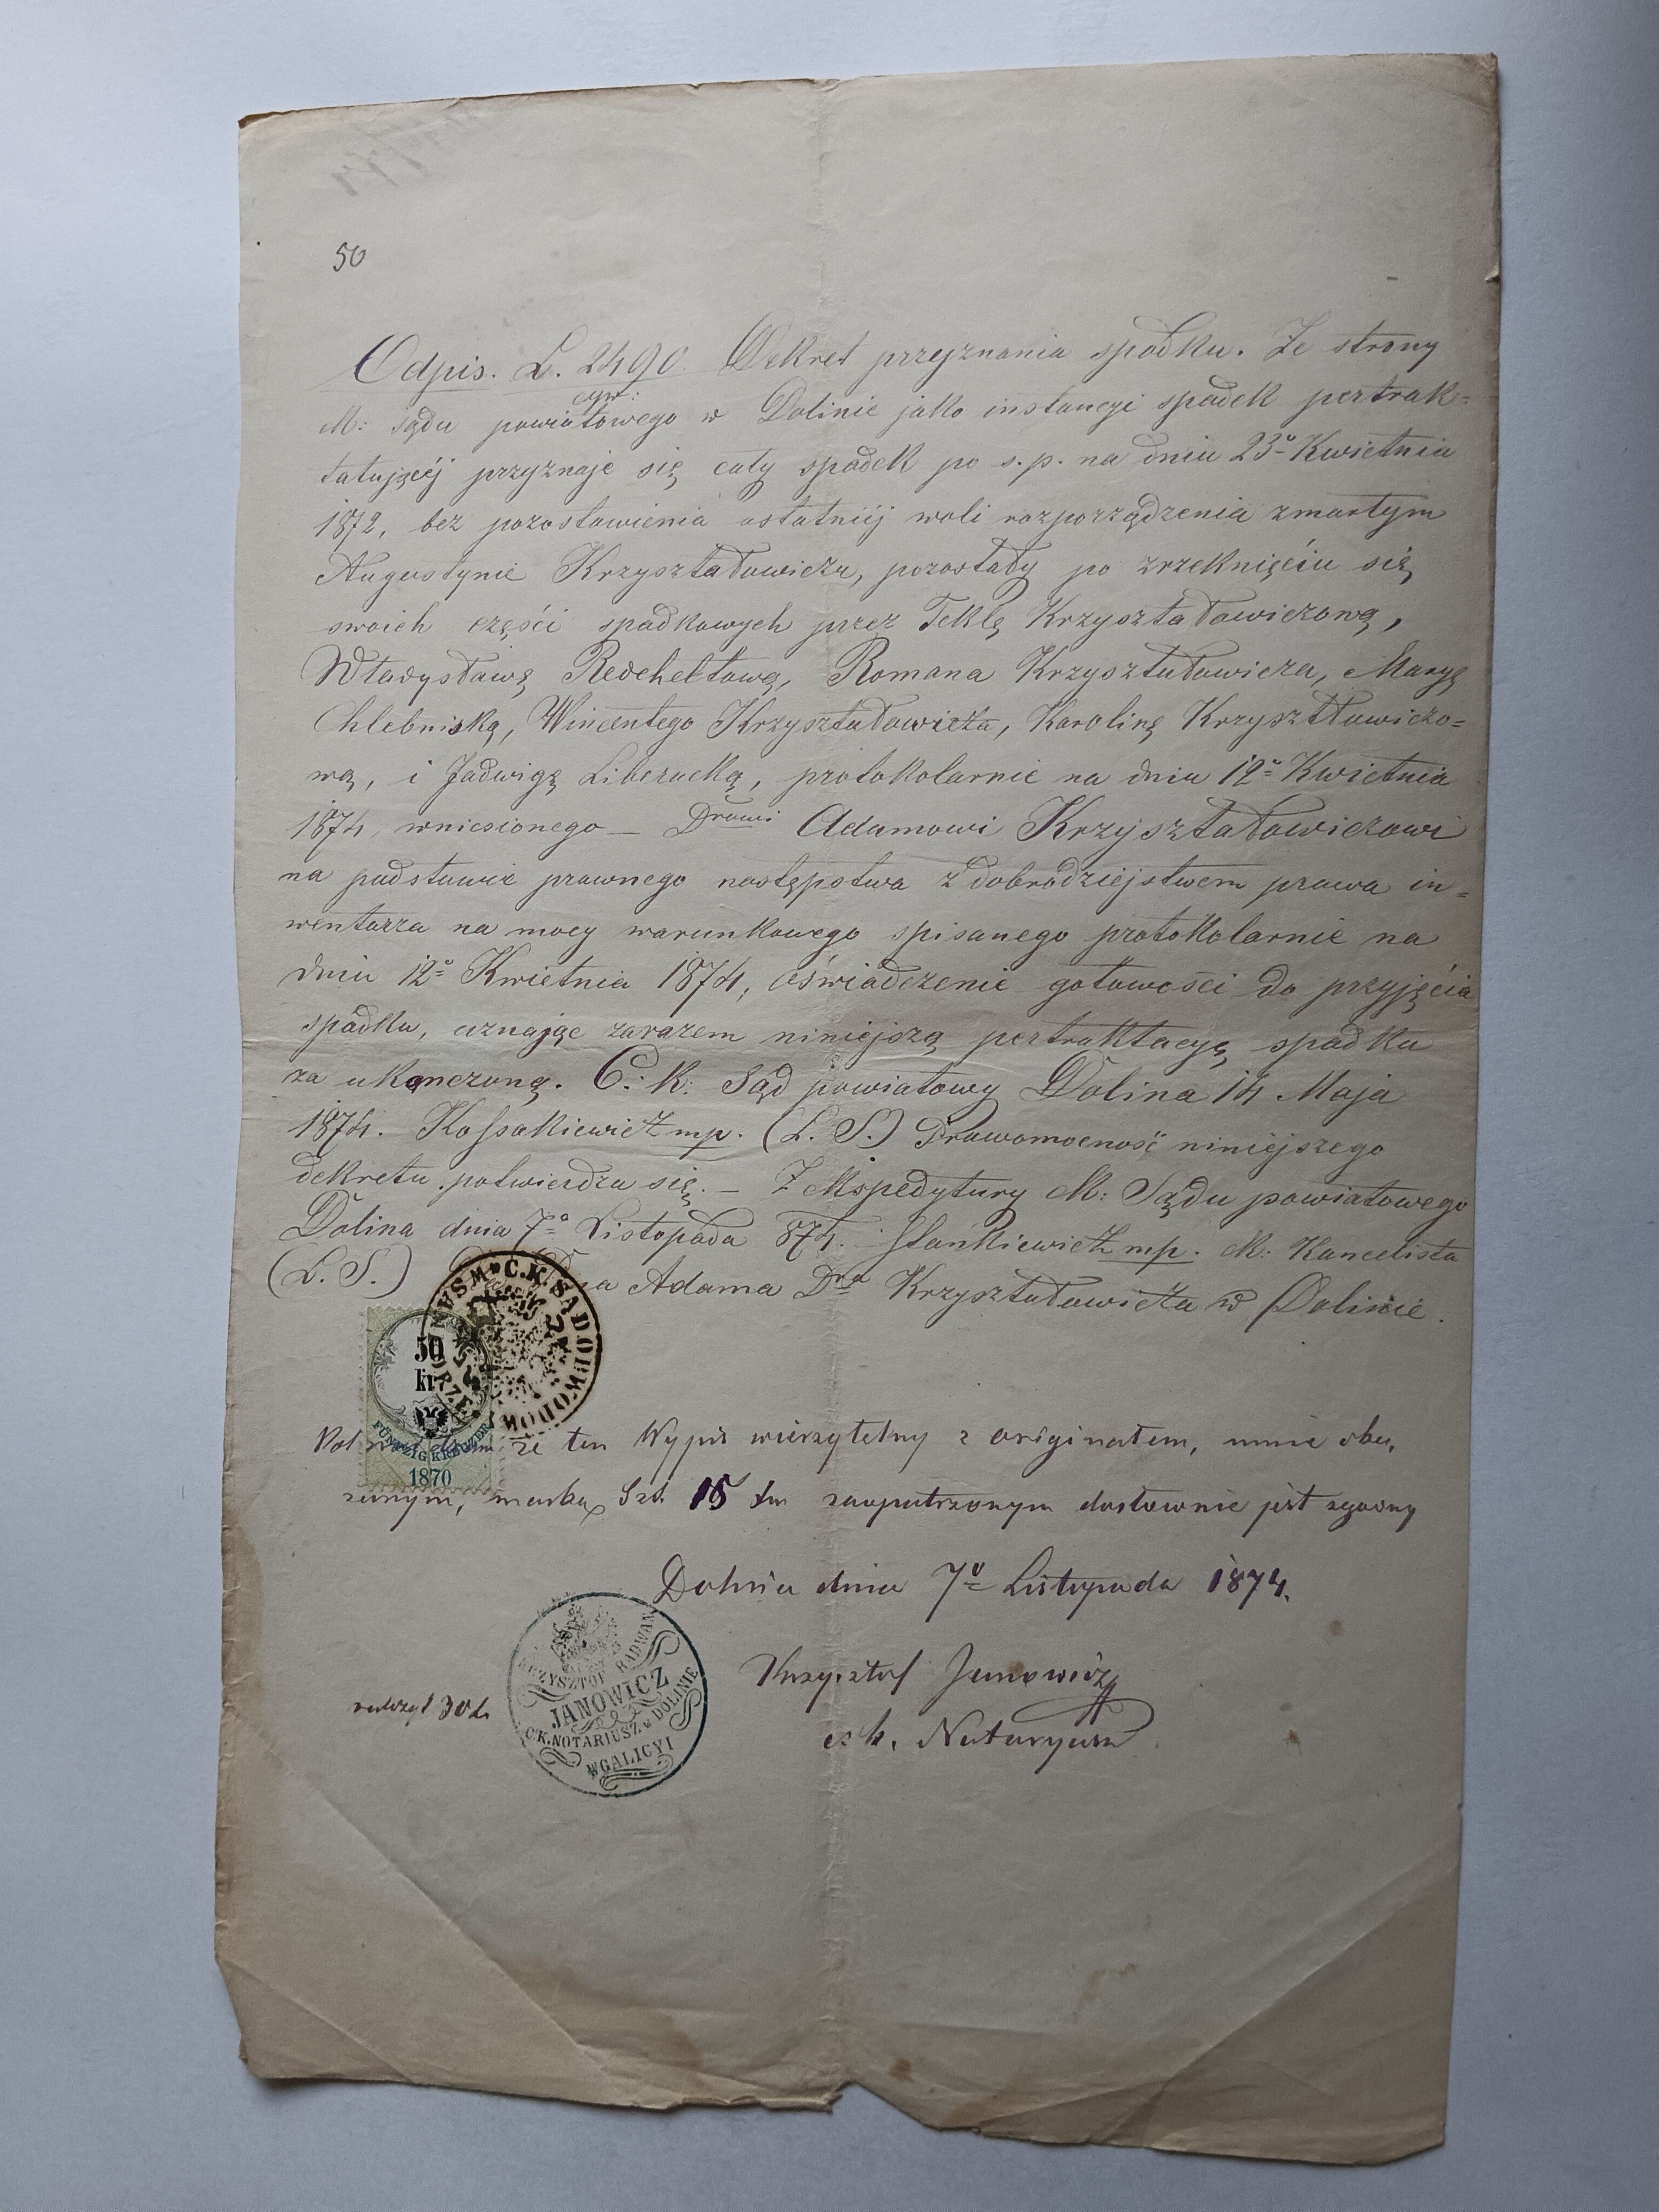 50
Odpis. L. 2490. Dekret przyznania spadku. Ze strony
egw:
M: sądu powiatowego w Dolinie jako instancyi spadek pertrak=
tatującéj przyznaje się cały spadek po s. p. na dniu 23º Kwietnia
1872, bez pozostawienia ostatniéj woli rozporządzenia zmarłym
Augustynie Krzyształowiczu, pozostały po zrzeknięciu się
swoich części spadkowych przez Teklę Krzyształowiczową,
Władysławę Romana Krzyształowicza, Maryę
Chlebniską, Wincentego Krzyształowicza, Karolinę Krzysztłowiczo=
wą, i Jadwigę Liberacką, protokolarnie na dniu 12º Kwietnia
1874, wniesionego _ Drowi Adamowi Krzyształowiczowi
na podstawie prawnego następstwa z dobrodziejstwem prawa in=
wentarza na mocy warunkowego spisanego protokolarnie na
dniu 12º Kwietnia 1874, oświadczenie gotowości do przyjęcia
spadku, uznając zarazem niniejszą pertraktacyę spadku
za ukończoną. C: K: Sąd powiatowy Dolina 14 Maja
1874. Kossakiewicz mp. (L. S.) Prawomocność niniejszego
dekretu potwierdza się. _ Z ekspedytury M: Sądu powiatowego
Dolina dnia 7º Listopada 874. Stańkiewicz mp. M: Kancelista
(L. S.) Adama Dra Krzyształowicza w Dolinie.
C.K. SĄDOBWODOW
50 kr.
FÜNFZIG KREUZER
1870
że ten Wypis wierzytelny z originałem, mnie oka,
zanym, marką 15 zaopatrzonym dosłownie jest zgodny
Dolina dnia 7º Listopada 1874.
KRZYSZTOF RADWAN
JANOWICZ
C.K. NOTARIUSZ w DOLINIE
W GALICYI
Krzysztof Janowicz
c. k. Notaryusz